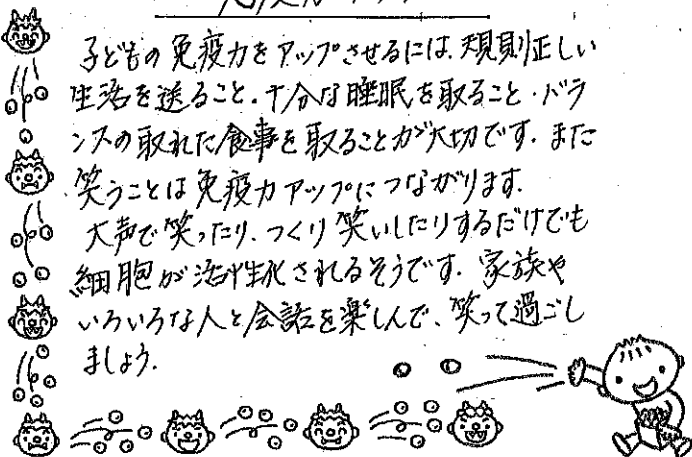 子どもの免疫力をアップさせるには、規則正しい
生活を送ること・十分な睡眠を取ること・バラ
ンスの取れた食事を取ることが大切です。また
笑うことは免疫力アップにつながります。
大声で笑ったり、つくり笑いしたりするだけでも
細胞が活性化されるそうです。家族や
いろいろな人と会話を楽しんで、笑って過ごし
ましょう。